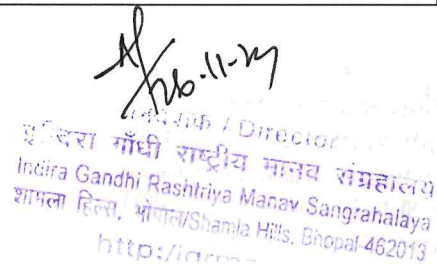 26-11-24
/ Director
इन्दिरा गाँधी राष्ट्रीय मानव संग्रहालय
Indira Gandhi Rashtriya Manav Sangrahalaya
शामला हिल्स, भोपाल/Shamla Hills, Bhopal-462013
http:/